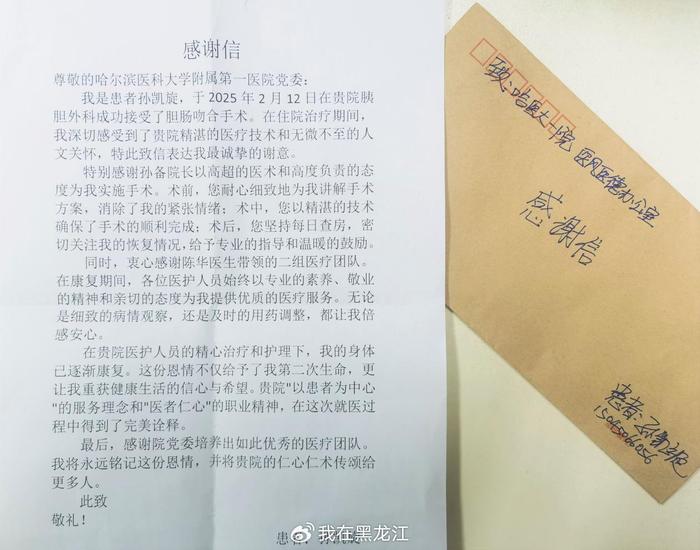 感谢信
尊敬的哈尔滨医科大学附属第一医院党委：
我是患者孙凯旋，于 2025 年 2 月 12 日在贵院胰
胆外科成功接受了胆肠吻合手术。在住院治疗期间，
我深切感受到了贵院精湛的医疗技术和无微不至的人
文关怀，特此致信表达我最诚挚的谢意。
特别感谢孙备院长以高超的医术和高度负责的态
度为我实施手术。术前，您耐心细致地为我讲解手术
方案，消除了我的紧张情绪；术中，您以精湛的技术
确保了手术的顺利完成；术后，您坚持每日查房，密
切关注我的恢复情况，给予专业的指导和温暖的鼓励。
同时，衷心感谢陈华医生带领的二组医疗团队。
在康复期间，各位医护人员始终以专业的素养、敬业
的精神和亲切的态度为我提供优质的医疗服务。无论
是细致的病情观察，还是及时的用药调整，都让我倍
感安心。
在贵院医护人员的精心治疗和护理下，我的身体
已逐渐康复。这份恩情不仅给予了我第二次生命，更
让我重获健康生活的信心与希望。贵院"以患者为中心
"的服务理念和"医者仁心"的职业精神，在这次就医过
程中得到了完美诠释。
最后，感谢院党委培养出如此优秀的医疗团队。
我将永远铭记这份恩情，并将贵院的仁心仁术传颂给
更多人。
此致
敬礼！
患者：孙凯旋
致：哈医大一院 医风医德办公室
感谢信
患者：孙凯旋
@我在黑龙江